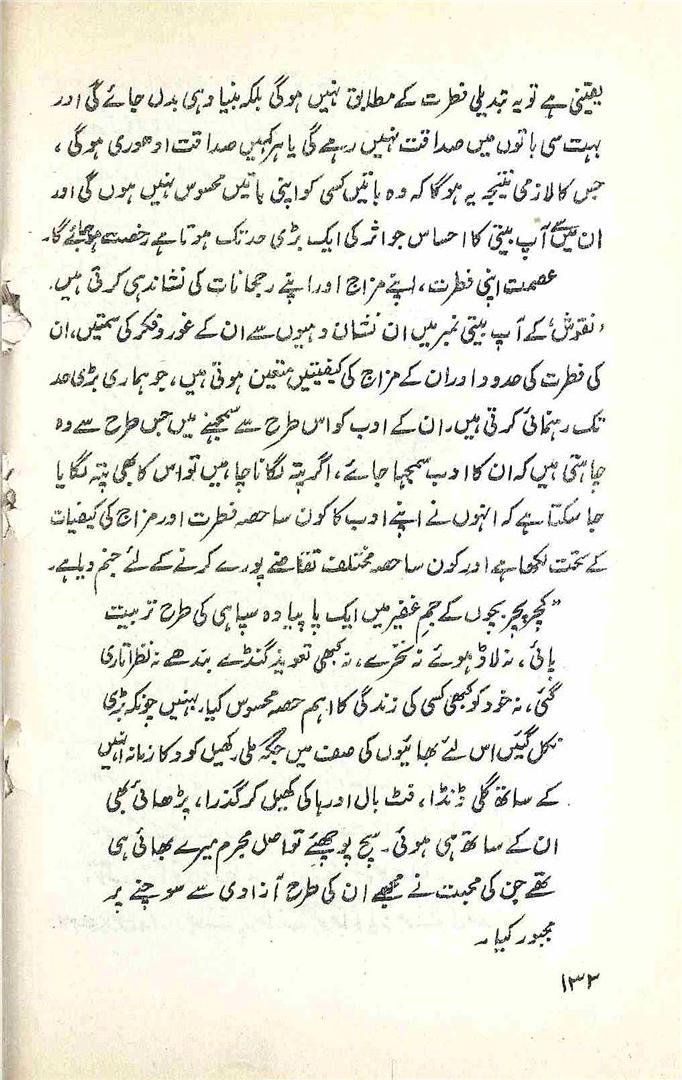 یقینی ہے تو یہ تبدیلی فطرت کے مطابق نہیں ہوگی بلکہ بنیاد ہی بدل جائے گی اور
بہت سی باتوں میں صداقت نہیں رہے گی یا ہر کہیں صداقت ادھوری ہوگی،
جس کا لازمی نتیجہ یہ ہوگا کہ وہ باتیں کسی کو اپنی باتیں محسوس نہیں ہوں گی اور
ان میں سے آپ بیتی کا احساس جو اثر کی ایک بڑی حد تک ہوتا ہے رخصت ہو جائے گا۔
عصمت اپنی فطرت، اپنے مزاج اور اپنے رجحانات کی نشاندہی کرتی ہیں۔
’نقوش‘ کے آپ بیتی نمبر میں ان نشان دہیوں سے ان کے غور و فکر کی سمتیں، ان
کی فطرت کی حدود اور ان کے مزاج کی کیفیتیں متعین ہوتی ہیں، جو ہماری بڑی حد
تک رہنمائی کرتی ہیں۔ ان کے ادب کو اس طرح سے سمجھنے میں جس طرح سے وہ
چاہتی ہیں کہ ان کا ادب سمجھا جائے، اگر پتہ لگانا چاہیں تو اس کا بھی پتہ لگایا
جا سکتا ہے کہ انہوں نے اپنے ادب کا کون سا حصہ فطرت اور مزاج کی کیفیات
کے تحت لکھا ہے اور کون سا حصہ مختلف تقاضے پورے کرنے کے لئے جنم دیا ہے۔
”کچر پچر بچوں کے جم غفیر میں ایک پا پیادہ سپاہی کی طرح تربیت
پائی، نہ لاڈ ہوئے نہ نخرے، نہ کبھی تعویذ گنڈے بندھے نہ نظر اتاری
گئی، نہ خود کو کبھی کسی کی زندگی کا اہم حصہ محسوس کیا۔ بہنیں چونکہ بڑی
نکل گئیں اس لئے بھائیوں کی صف میں جگہ ملی۔ کھیل کود کا زمانہ انہیں
کے ساتھ گلی ڈنڈا، فٹ بال اور ہاکی کھیل کر گذرا، پڑھائی بھی
ان کے ساتھ ہی ہوئی۔ سچ پوچھئے تو اصل مجرم میرے بھائی ہی
تھے جن کی صحبت نے مجھے ان کی طرح آزادی سے سوچنے پر
مجبور کیا۔
۱۳۳